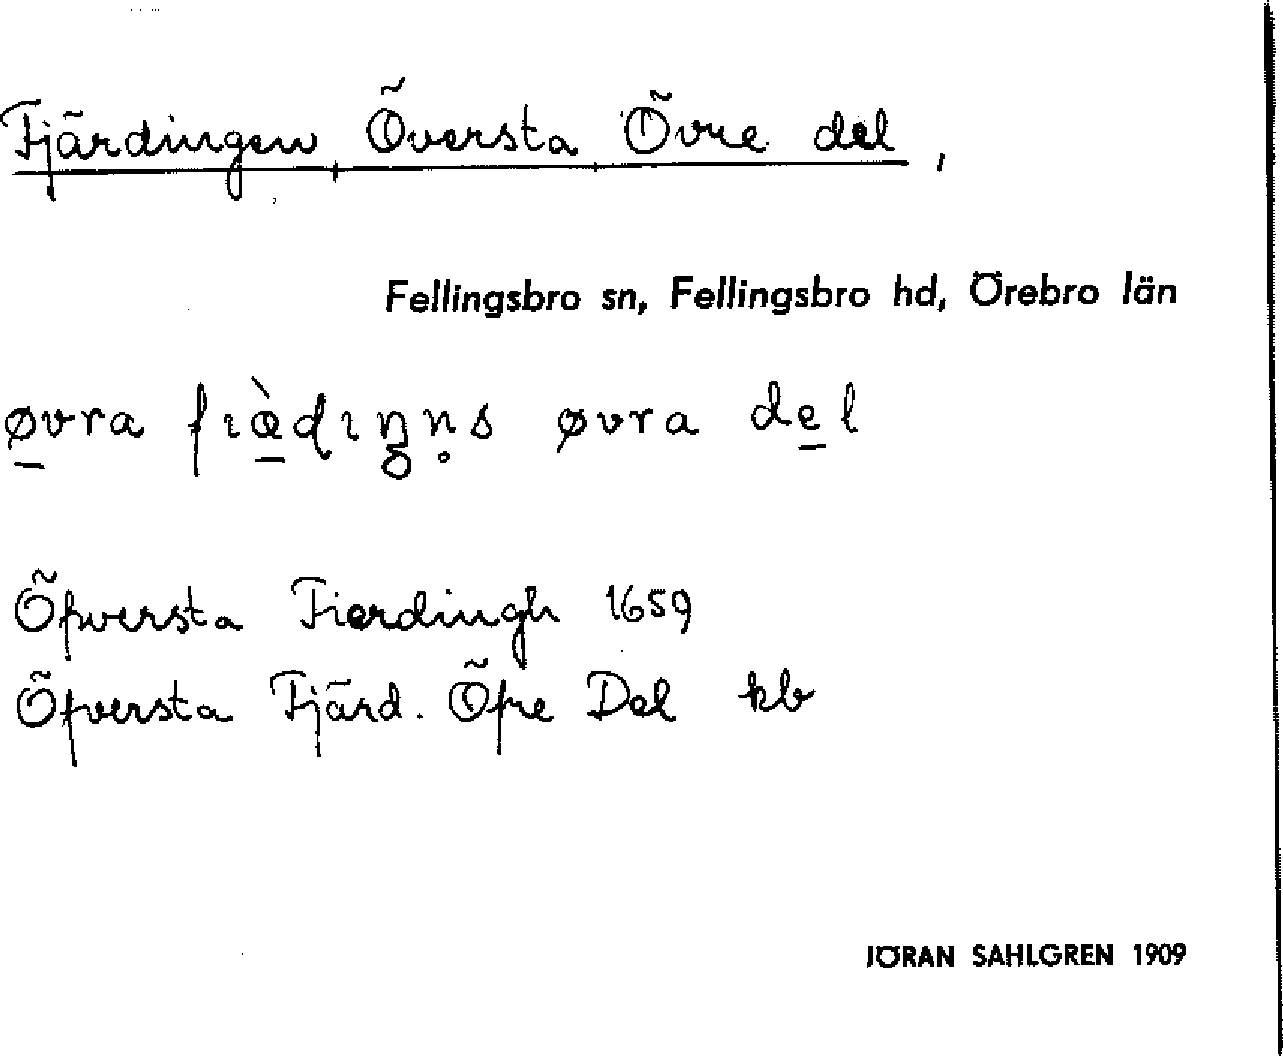 Fjärdingen Översta Övre del,
Fellingsbro sn, Fellingsbro hd, Örebro län
øvra øvra del
Öfversta Fierdingh 1659
Öfversta Fjärd. Öfre Del kb
JÖRAN SAHLGREN 1909